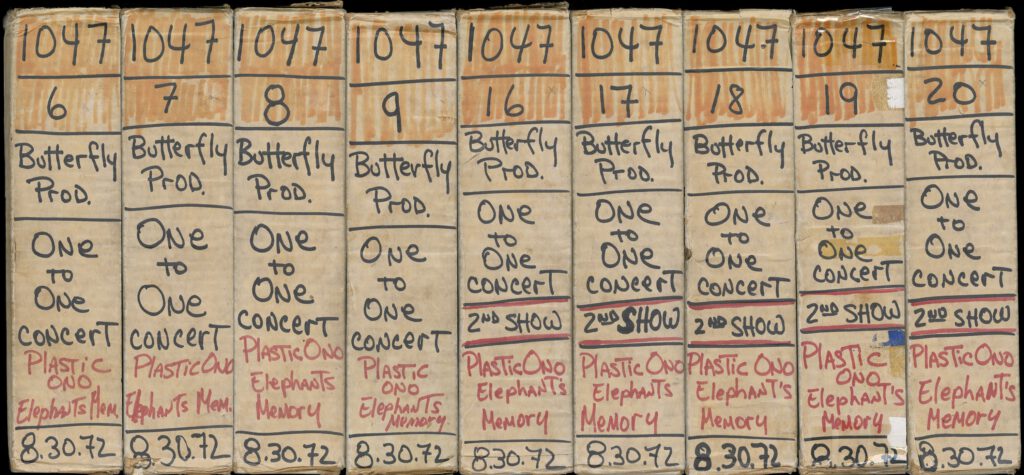 1047
6
Butterfly
Prod.
One
to
One
concert
Plastic
Ono
Elephants Mem.
8.30.72
1047
7
Butterfly
Prod.
One
to
One
concert
Plastic Ono
Elephants Mem.
8.30.72
1047
8
Butterfly
Prod.
One
to
One
concert
Plastic Ono
Elephants
Memory
8.30.72
1047
9
Butterfly
Prod.
One
to
One
concert
Plastic
Ono
Elephants
Memory
8.30.72
1047
16
Butterfly
Prod.
One
to
One
concert
2ND SHOW
Plastic Ono
Elephant's
Memory
8.30.72
1047
17
Butterfly
Prod.
One
to
One
concert
2ND SHOW
Plastic Ono
Elephants
Memory
8.30.72
1047
18
Butterfly
Prod.
One
to
One
concert
2ND SHOW
Plastic Ono
Elephant's
Memory
8.30.72
1047
19
Butterfly
Prod.
One
to
One
concert
2ND SHOW
Plastic
Ono
Elephant's
Memory
8.30.72
1047
20
Butterfly
Prod.
One
to
One
concert
2ND SHOW
Plastic Ono
Elephant's
Memory
8.30.72